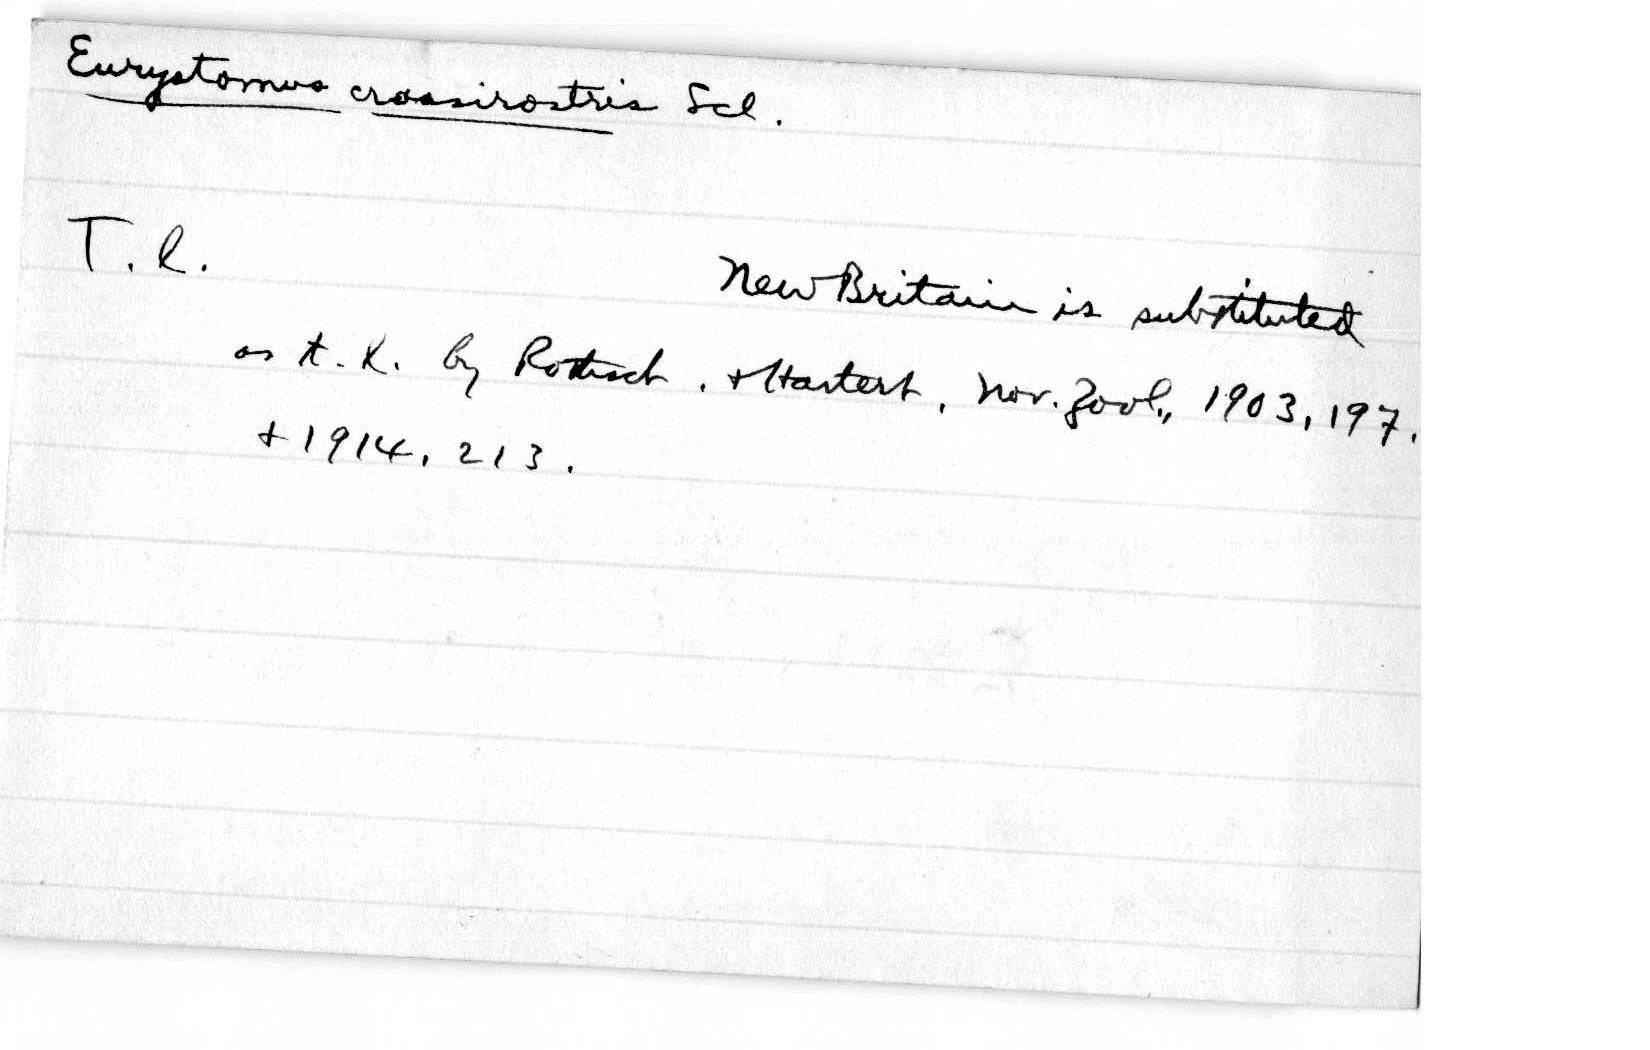 Eurystomus crassirostris Scl.
T. l.
New Britain is substituted
as t. l. by Rothsch. & Hartert, Nov. Zool., 1903, 197.
& 1914, 213.